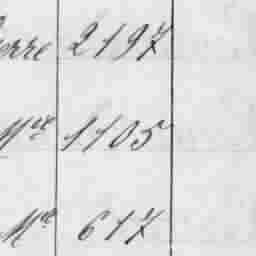 erre 2197
Mce 1105
Mce 617